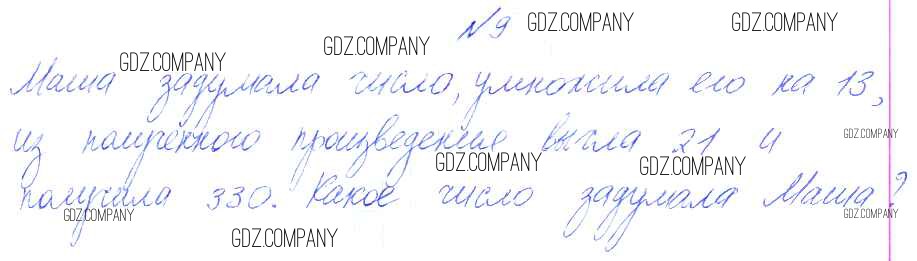 №9
Маша задумала число, умножила его на 13,
из полученного произведения вычла 21 и
получила 330. Какое число задумала Маша?
GDZ.COMPANY
GDZ.COMPANY
GDZ.COMPANY
GDZ.COMPANY
GDZ.COMPANY
GDZ.COMPANY
GDZ.COMPANY
GDZ.COMPANY
GDZ.COMPANY
GDZ.COMPANY